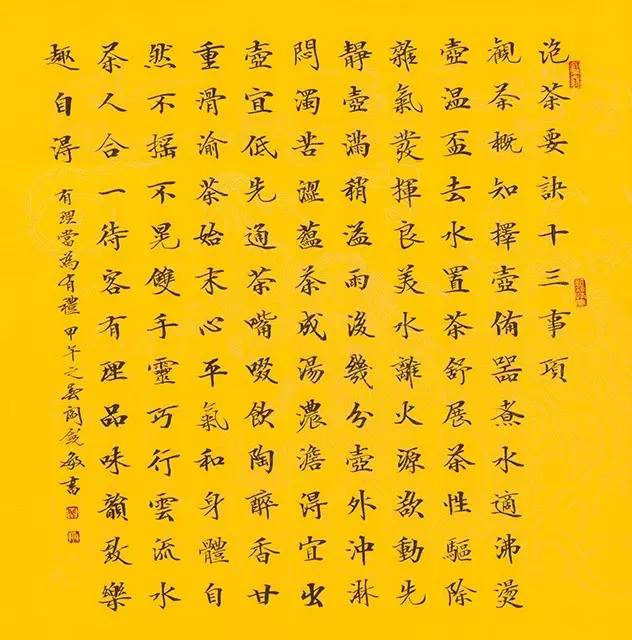 泡茶要訣十三事項
觀茶概知擇壺備器煮水適沸燙
壺温盃去水置茶舒展茶性驅除
雜氣發揮良美水離火源欲動先
靜壺滿稍溢雨後幾分壺外沖淋
悶濁苦澀蘊茶成湯濃澹得宜出
壺宜低先通茶嘴啜飲陶醉香甘
重滑渝茶始末心平氣和身體自
然不搖不晃雙手靈巧行雲流水
茶人合一待客有理品味韻致樂
趣自得
有理當為有禮 甲午之 敏書